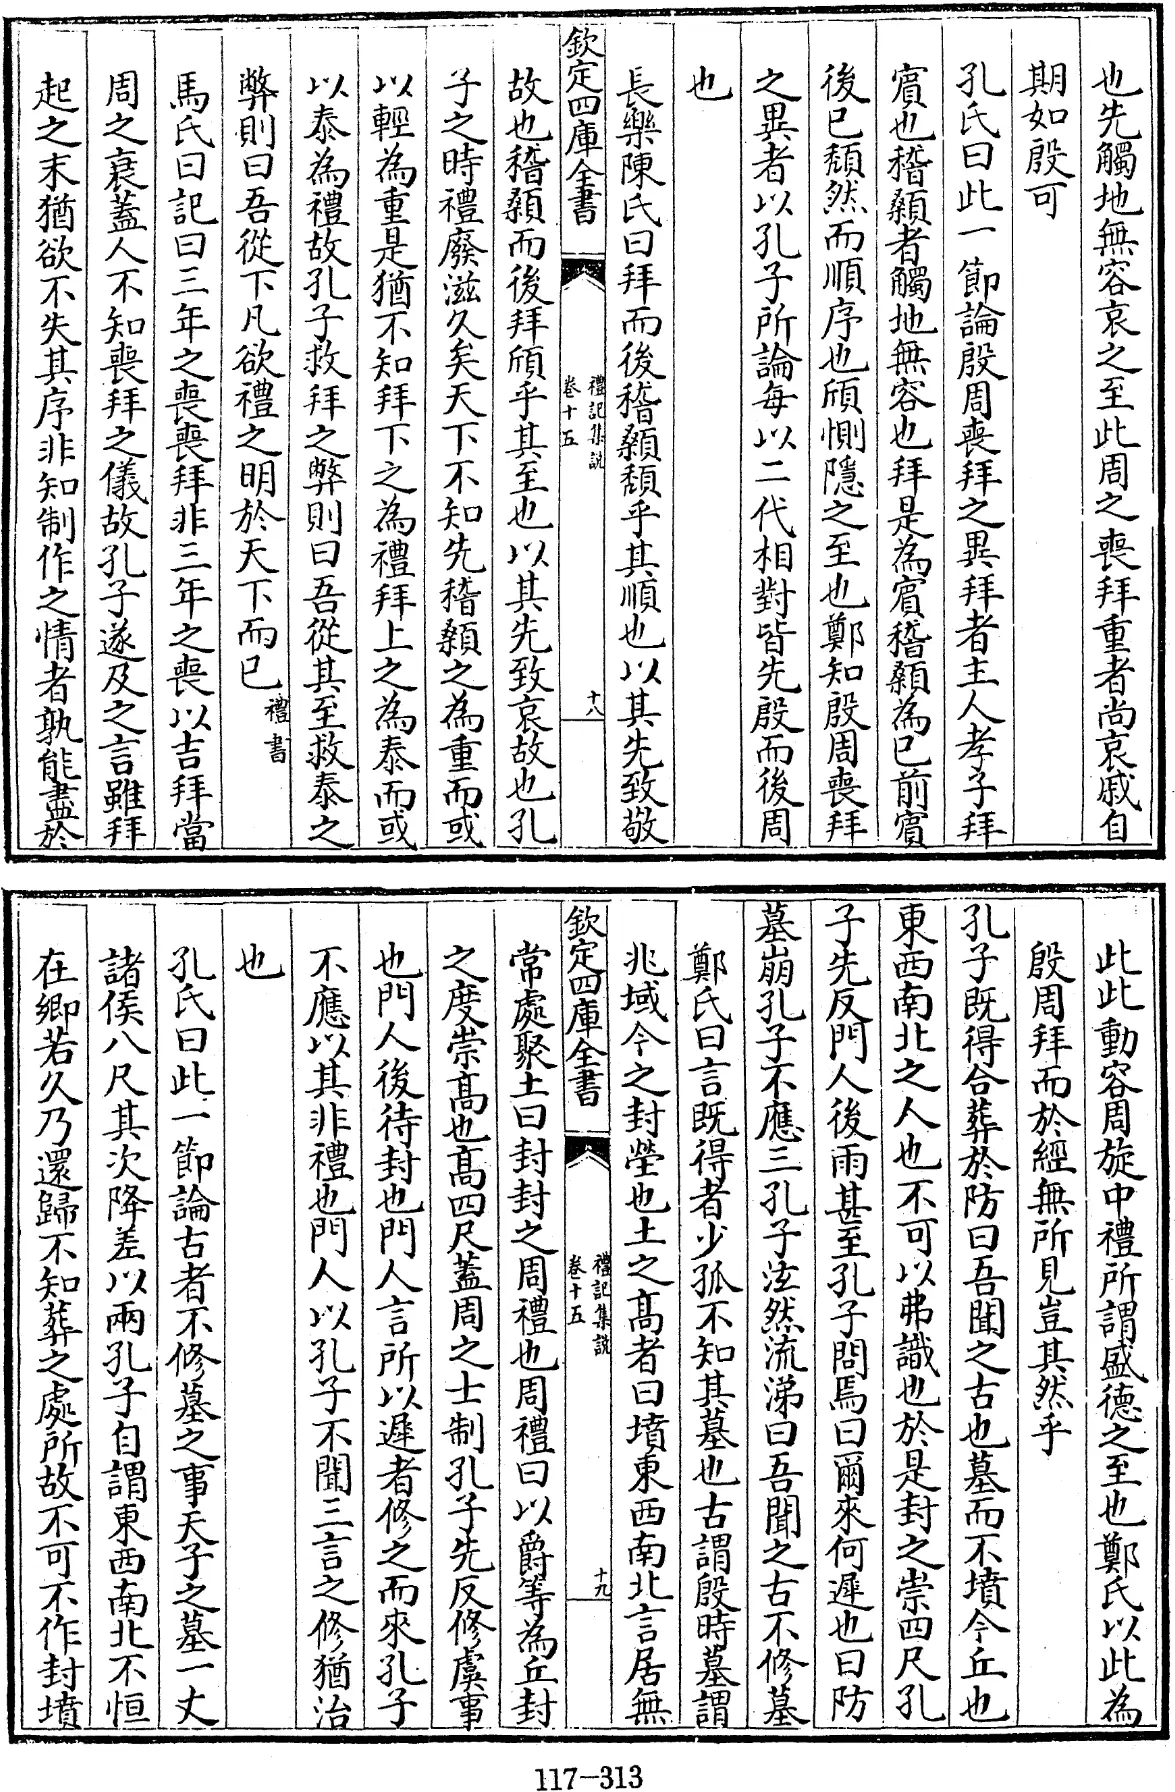 也先觸地無容哀之至此周之喪拜重者尚哀戚自
期如殷可
孔氏曰此一節論殷周喪拜之異拜者主人孝子拜
賓也稽顙者觸地無容也拜是為賓稽顙為已前賓
後已頹然而順序也頎惻隱之至也鄭知殷周喪拜
之異者以孔子所論每以二代相對皆先殷而後周
也
長樂陳氏曰拜而後稽顙頹乎其順也以其先致敬
欽定四庫全書
禮記集說
卷十五
十八
故也稽顙而後拜頎乎其至也以其先致哀故也孔
子之時禮廢滋久矣天下不知先稽顙之為重而或
以輕為重是猶不知拜下之為禮拜上之為泰而或
以泰為禮故孔子救拜之弊則曰吾從其至救泰之
弊則曰吾從下凡欲禮之明於天下而已禮書
馬氏曰記曰三年之喪喪拜非三年之喪以吉拜當
周之衰蓋人不知喪拜之儀故孔子遂及之言雖拜
起之末猶欲不失其序非知制作之情者孰能盡於
此此動容周旋中禮所謂盛德之至也鄭氏以此為
殷周拜而於經無所見豈其然乎
孔子既得合葬於防曰吾聞之古也墓而不墳今丘也
東西南北之人也不可以弗識也於是封之崇四尺孔
子先反門人後雨甚至孔子問焉曰爾來何遲也曰防
墓崩孔子不應三孔子泫然流涕曰吾聞之古不修墓
鄭氏曰言既得者少孤不知其墓也古謂殷時墓謂
兆域今之封塋也土之高者曰墳東西南北言居無
欽定四庫全書
禮記集說
卷十五
十九
常處聚土曰封封之周禮也周禮曰以爵等為丘封
之度崇高也高四尺蓋周之士制孔子先反修虞事
也門人後待封也門人言所以遲者修之而來孔子
不應以其非禮也門人以孔子不聞三言之修猶治
也
孔氏曰此一節論古者不修墓之事天子之墓一丈
諸侯八尺其次降差以兩孔子自謂東西南北不恒
在鄉若久乃還歸不知葬之處所故不可不作封墳
117-313